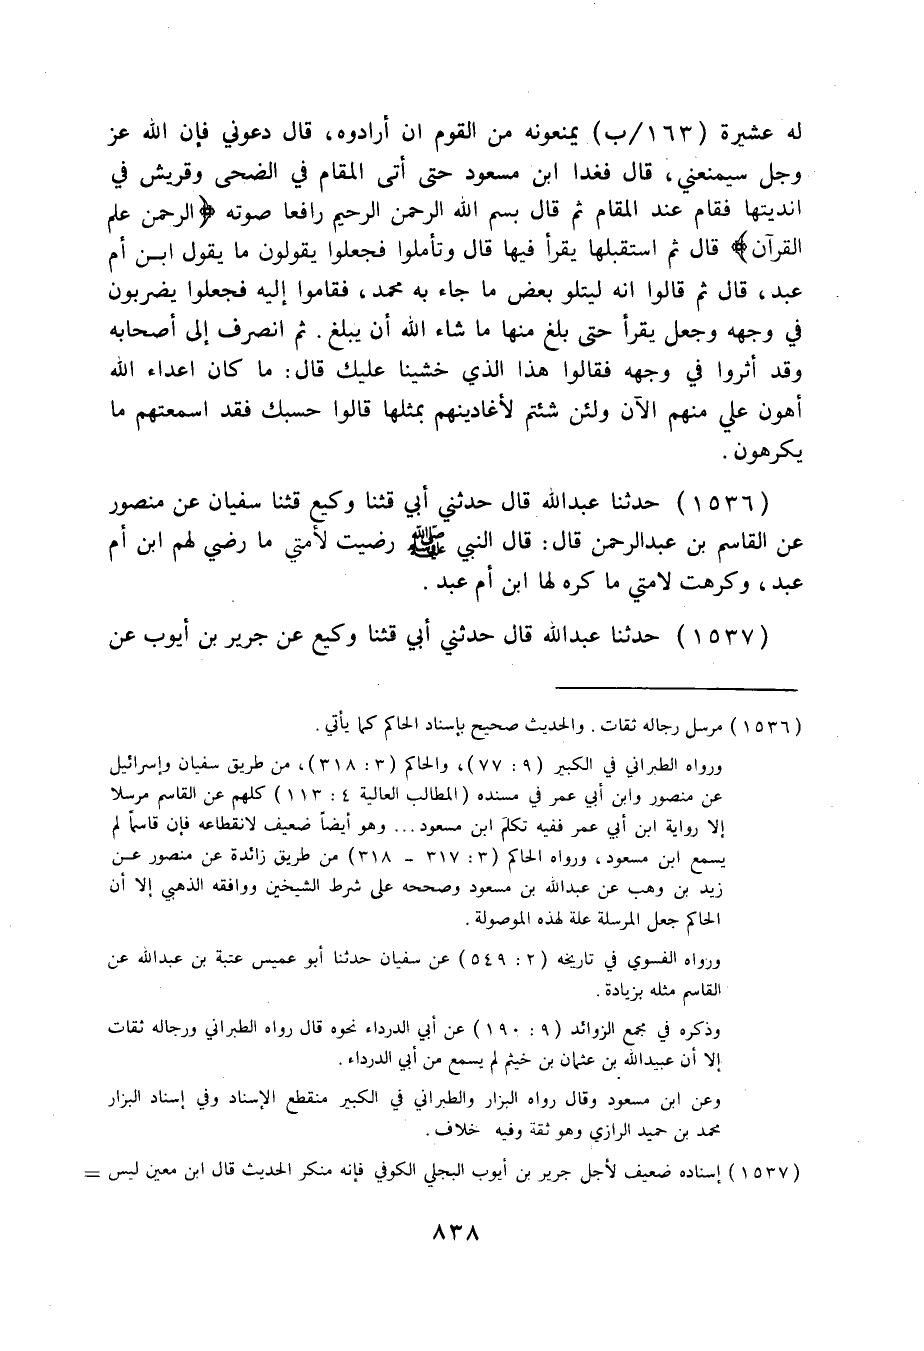 له عشيرة (١٦٣/ب) يمنعونه من القوم ان أرادوه، قال دعوني فإن الله عز
وجل سيمنعني، قال فغدا ابن مسعود حتى أتى المقام في الضحى وقريش في
انديتها فقام عند المقام ثم قال بسم الله الرحمن الرحيم رافعا صوته ﴿الرحمن علم
القرآن﴾ قال ثم استقبلها يقرأ فيها قال وتأملوا فجعلوا يقولون ما يقول ابن أم
عبد، قال ثم قالوا انه ليتلو بعض ما جاء به محمد، فقاموا إليه فجعلوا يضربون
في وجهه وجعل يقرأ حتى بلغ منها ما شاء الله أن يبلغ. ثم انصرف إلى أصحابه
وقد أثروا في وجهه فقالوا هذا الذي خشينا عليك قال: ما كان اعداء الله
أهون علي منهم الآن ولئن شئتم لأغادينهم بمثلها قالوا حسبك فقد اسمعتهم ما
يكرهون.
(١٥٣٦) حدثنا عبدالله قال حدثني أبي قثنا وكيع قثنا سفيان عن منصور
عن القاسم بن عبدالرحمن قال: قال النبي ﷺ رضيت لأمتي ما رضي لهم ابن أم
عبد، وكرهت لامتي ما كره لها ابن أم عبد.
(١٥٣٧) حدثنا عبدالله قال حدثني أبي قثنا وكيع عن جرير بن أيوب عن
(١٥٣٦) مرسل رجاله ثقات. والحديث صحيح بإسناد الحاكم كما يأتي.
ورواه الطبراني في الكبير (٩: ٧٧)، والحاكم (٣: ٣١٨)، من طريق سفيان وإسرائيل
عن منصور وابن أبي عمر في مسنده (المطالب العالية ٤: ١١٣) كلهم عن القاسم مرسلا
إلا رواية ابن أبي عمر ففيه تكلم ابن مسعود... وهو أيضاً ضعيف لانقطاعه فإن قاسماً لم
يسمع ابن مسعود، ورواه الحاكم (٣: ٣١٧ - ٣١٨) من طريق زائدة عن منصور عن
زيد بن وهب عن عبدالله بن مسعود وصححه على شرط الشيخين ووافقه الذهبي إلا أن
الحاكم جعل المرسلة علة لهذه الموصولة.
ورواه الفسوي في تاريخه (٢: ٥٤٩) عن سفيان حدثنا أبو عميس عتبة بن عبدالله عن
القاسم مثله بزيادة.
وذكره في مجمع الزوائد (٩: ١٩٠) عن أبي الدرداء نحوه قال رواه الطبراني ورجاله ثقات
إلا أن عبيدالله بن عثمان بن خيثم لم يسمع من أبي الدرداء.
وعن ابن مسعود وقال رواه البزار والطبراني في الكبير منقطع الإسناد وفي إسناد البزار
محمد بن حميد الرازي وهو ثقة وفيه خلاف.
(١٥٣٧) إسناده ضعيف لأجل جرير بن أيوب البجلي الكوفي فإنه منكر الحديث قال ابن معين ليس =
٨٣٨